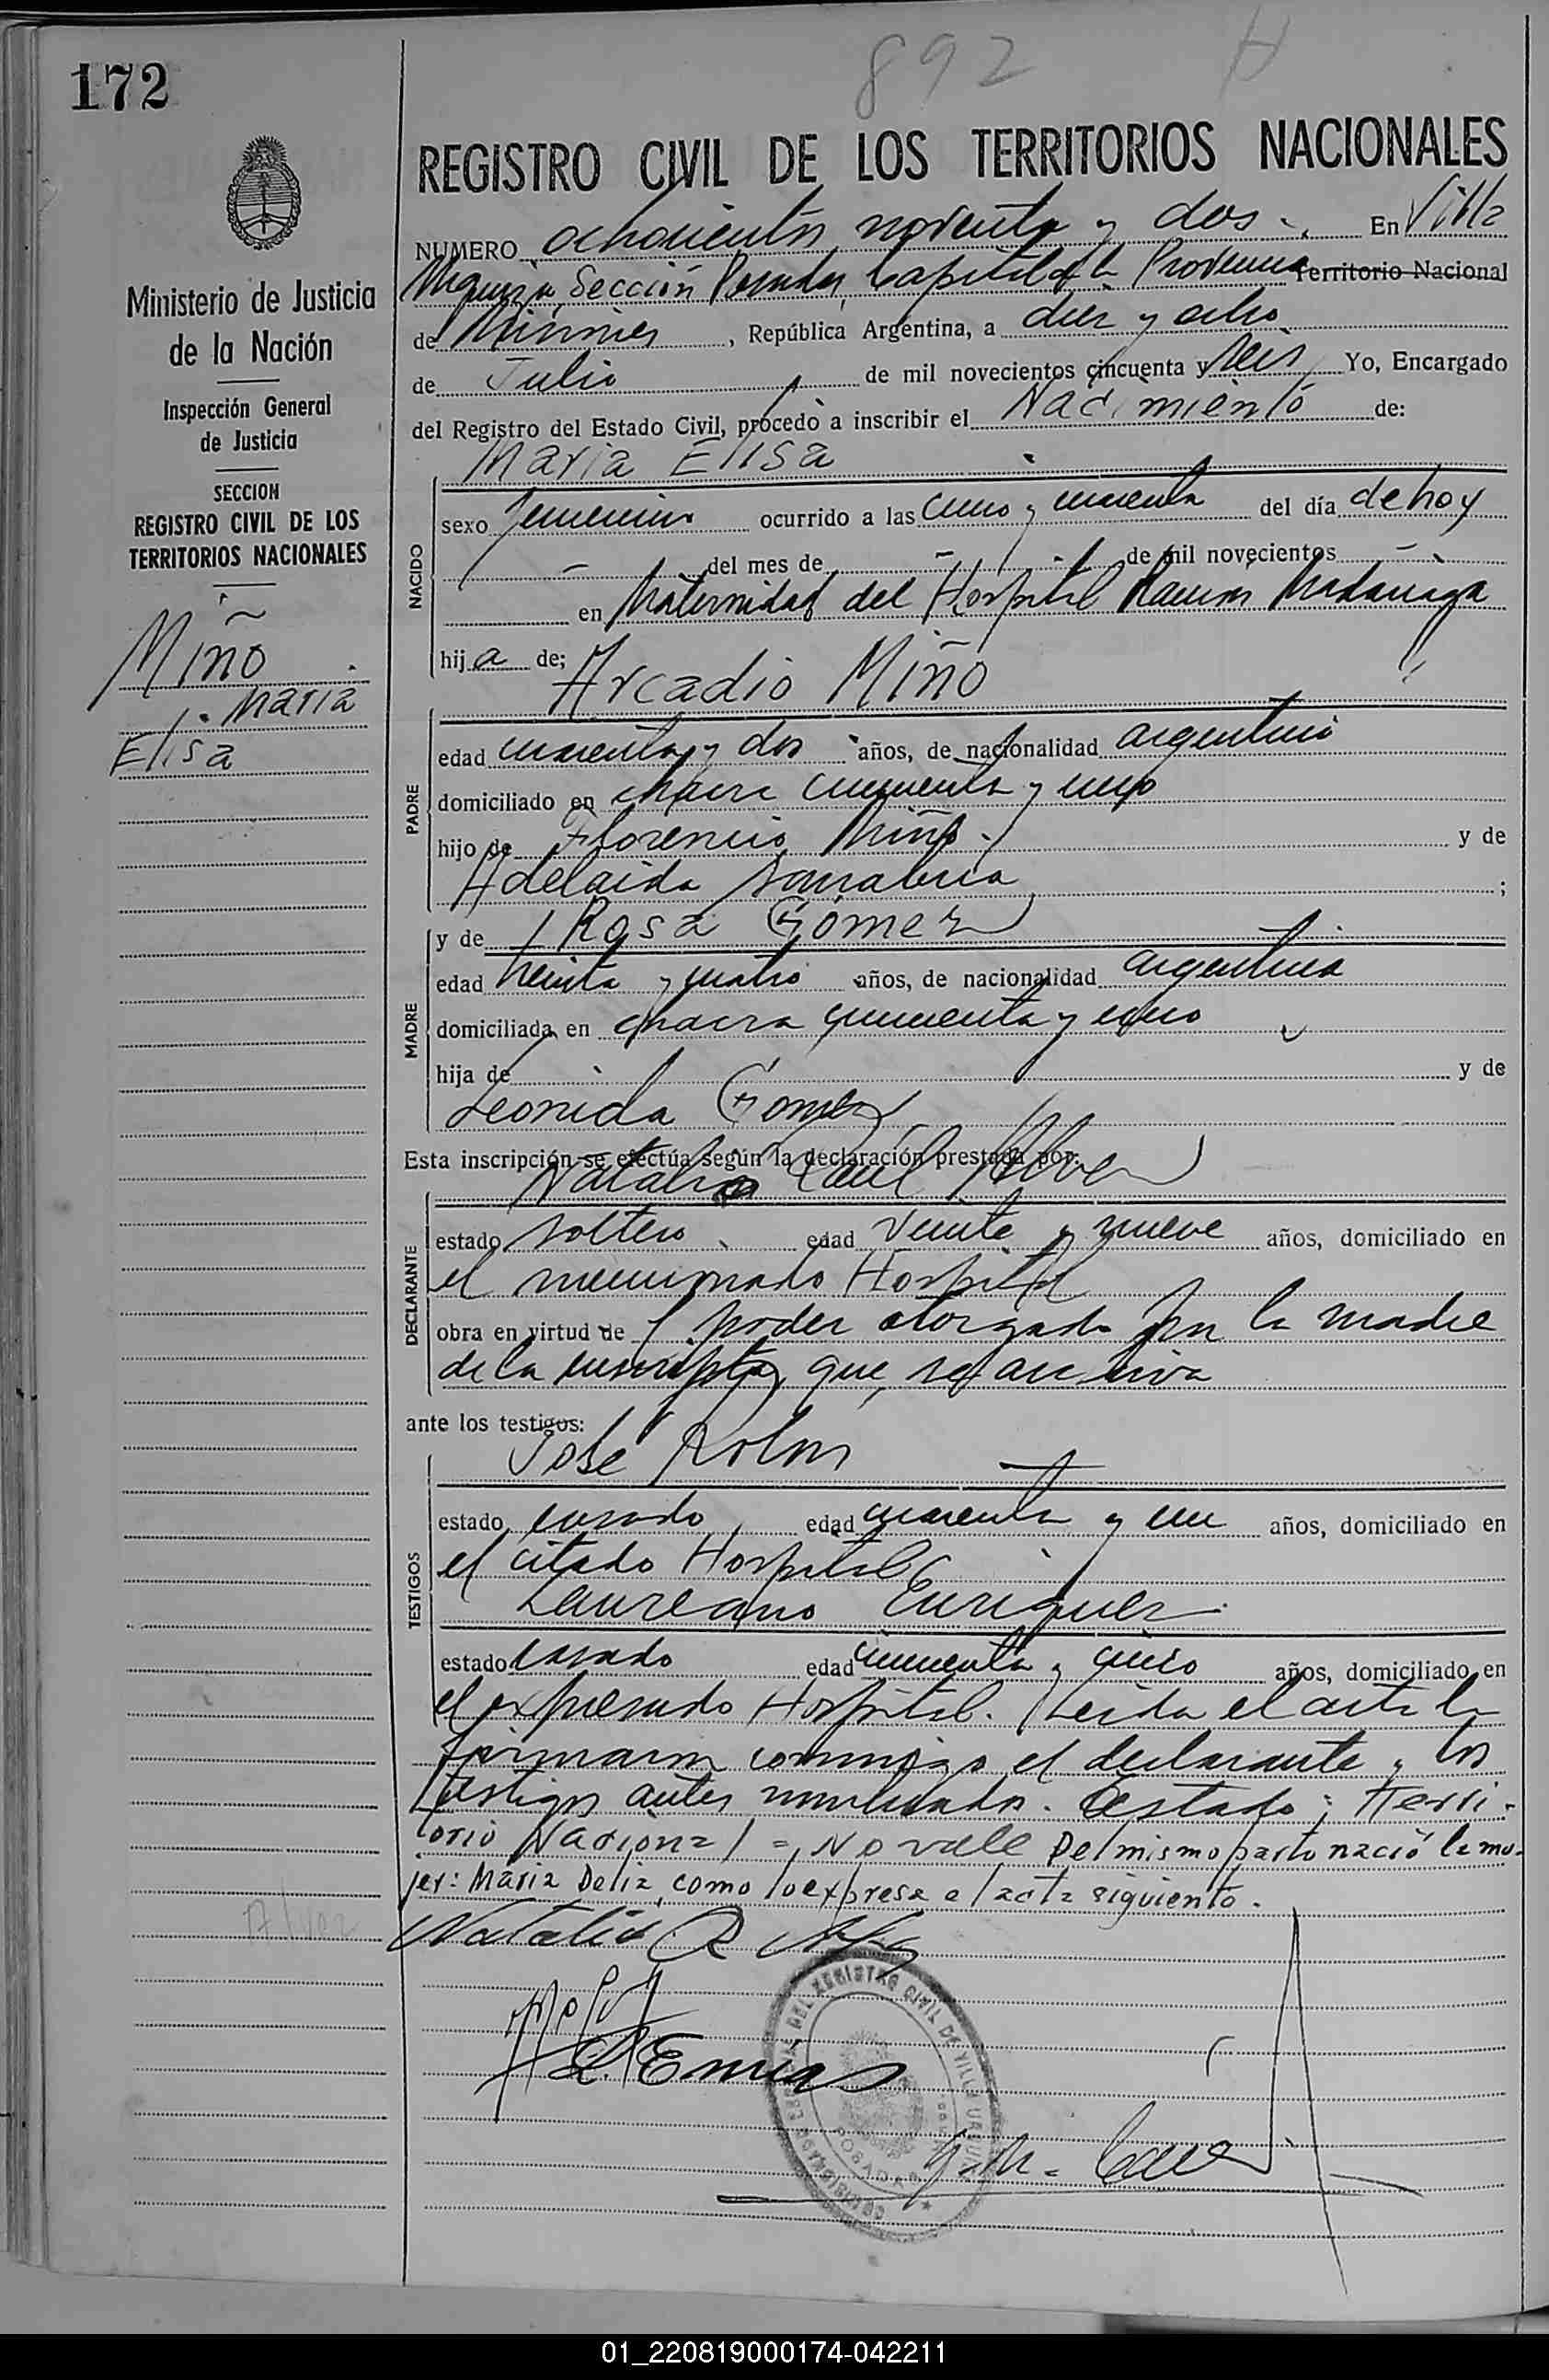 172
892 H
REGISTRO CIVIL DE LOS TERRITORIOS NACIONALES
Ministerio de Justicia
de la Nación
Inspección General
de Justicia
SECCION
REGISTRO CIVIL DE LOS
TERRITORIOS NACIONALES
Miño
Maria
Elisa
NUMERO ochocientos noventa y dos. En Villa
Urquiza, Sección Posadas, Capital de la Provincia Territorio Nacional
de Misiones, República Argentina, a diez y ocho
de Julio de mil novecientos cincuenta y seis Yo, Encargado
del Registro del Estado Civil, procedo a inscribir el Nacimiento de:
Maria Elisa
NACIDO
sexo femenino ocurrido a las cinco y cuarenta del día de hoy
— del mes de — de mil novecientos —
en Maternidad del Hospital Ramon Madariaga
hija de;
Arcadio Miño
PADRE
edad cuarenta y dos años, de nacionalidad argentino
domiciliado en chacra cincuenta y uno
hijo de Florencio Miño y de
Adelaida Sanabria ;
MADRE
y de Rosa Gómez
edad treinta y cuatro años, de nacionalidad argentina
domiciliada en chacra cincuenta y uno
hija de y de
Leonida Gomez
Esta inscripción se efectúa según la declaración prestada por:
Natalio Raúl Alvez
DECLARANTE
estado soltero edad veinte y nueve años, domiciliado en
el mencionado Hospital
obra en virtud de poder otorgado por la madre
de la inscripta, que se archiva
ante los testigos:
José Rolon
TESTIGOS
estado casado edad cuarenta y un años, domiciliado en
el citado Hospital
Laureano Enriquez
estado casado edad cincuenta y cinco años, domiciliado en
el expresado Hospital. Leida el acta la
firmaron conmigo el declarante y los
testigos antes nombrados. Testado: Terri-
torio Nacional =, No vale Del mismo parto nació la mu-
jer: Maria Delia, como lo expresa el acta siguiente.
Alvez
Natalio R
POSADAS
01_220819000174-042211